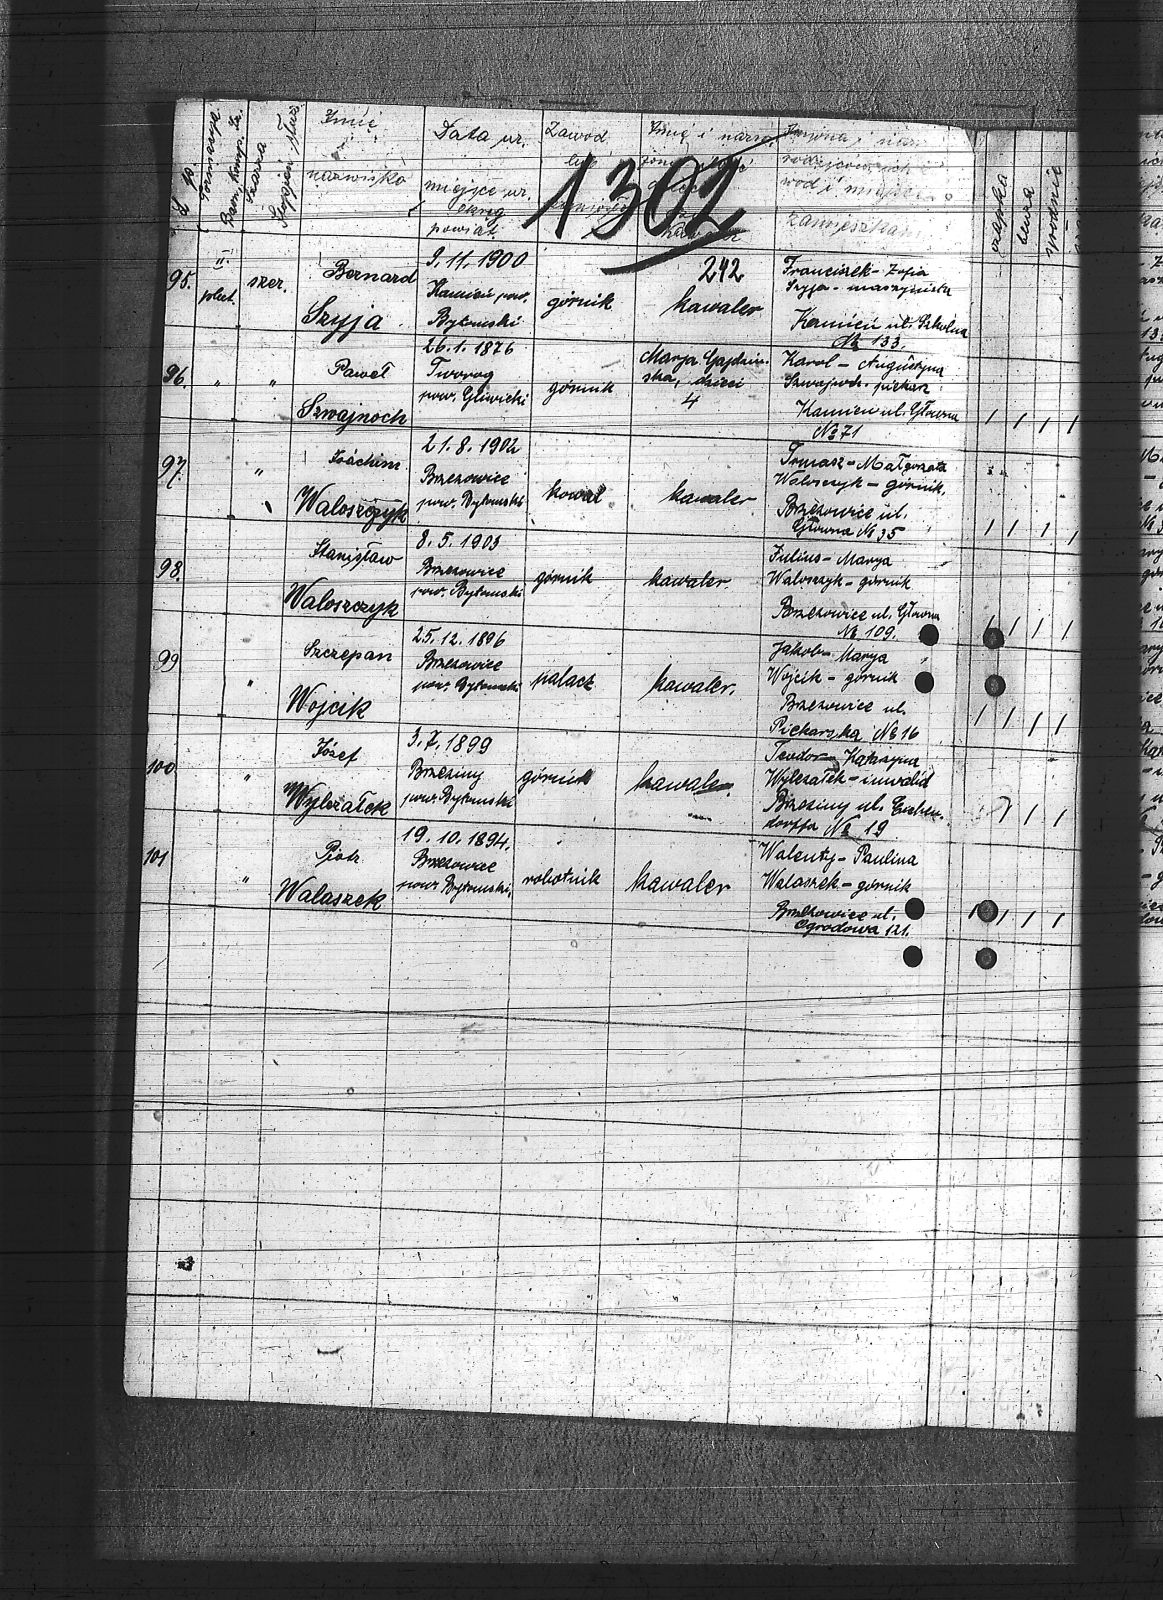 L. p.
Formacja
Baon. Komp. Za.
Szarża
Imię
nazwisko
Data ur.
miejsce ur.
okręg
powiat
Zawod
lub
Imię i nazw.
żony
rodziców i
zamieszkan
1302
242
czapka
bluza
spodnie
95. II. plut. szer. Bernard Szyja
9.11.1900
Kamień pow.
Bytomski
górnik
kawaler
Franciszek - Zofia
Szyja - maszynista
Kamień ul. Szkolna
№ 133.
96. " " Paweł Szwajnoch
26.1.1876
Tworog
pow. Gliwicki
górnik
Marja Gajdzin-
ska, dzieci
4
Karol - Augustyna
Szwajnoch. piekarz
Kamień ul. Główna
№ 71
97. " Joachim Waloszczyk
21.8.1902
Brzezowice
pow. Bytomski
kowal
kawaler
Tomasz - Małgorzata
Waloszczyk - górnik.
Brzezowice ul.
Główna № 35
98. Stanisław Waloszczyk
8.5.1903
Brzezowice
pow. Bytomski
górnik
kawaler.
Julius - Marya
Waloszczyk - górnik
Brzezowice ul. Główna
№ 109.
99 " Szczepan Wojcik
25.12.1896
Brzezowice
pow. Bytomski
palacz
kawaler.
Jakob - Marya
Wojcik - górnik
Brzezowice ul.
Piekarska № 16
100 " Józef Wylezałek
3.7.1899
Brzeziny
pow. Bytomski
górnik
kawaler.
Teodor - Katarzyna
Wylezałek - inwalid
Brzeziny ul. Eichen-
dorffa № 19
101 " Piotr Walaszek
19.10.1894.
Brzezowice
pow. Bytomski.
robotnik
kawaler
Walenty - Paulina
Walaszek - górnik
Brzezowice ul.
Ogrodowa 121.